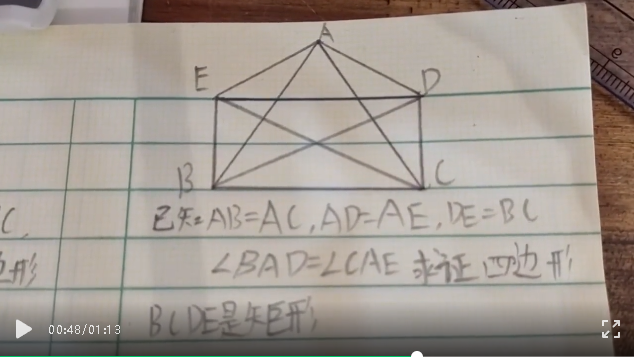 A
E
D
B
C
已知:AB=AC,AD=AE,DE=BC
C,
∠BAD=∠CAE 求证四边形
边形
BCDE是矩形
00:48/01:13